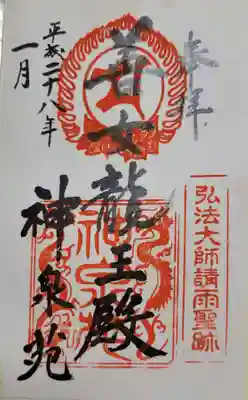 奉拝
弘法大師請雨聖跡
善女龍王殿
神泉苑
平成二十八年
一月